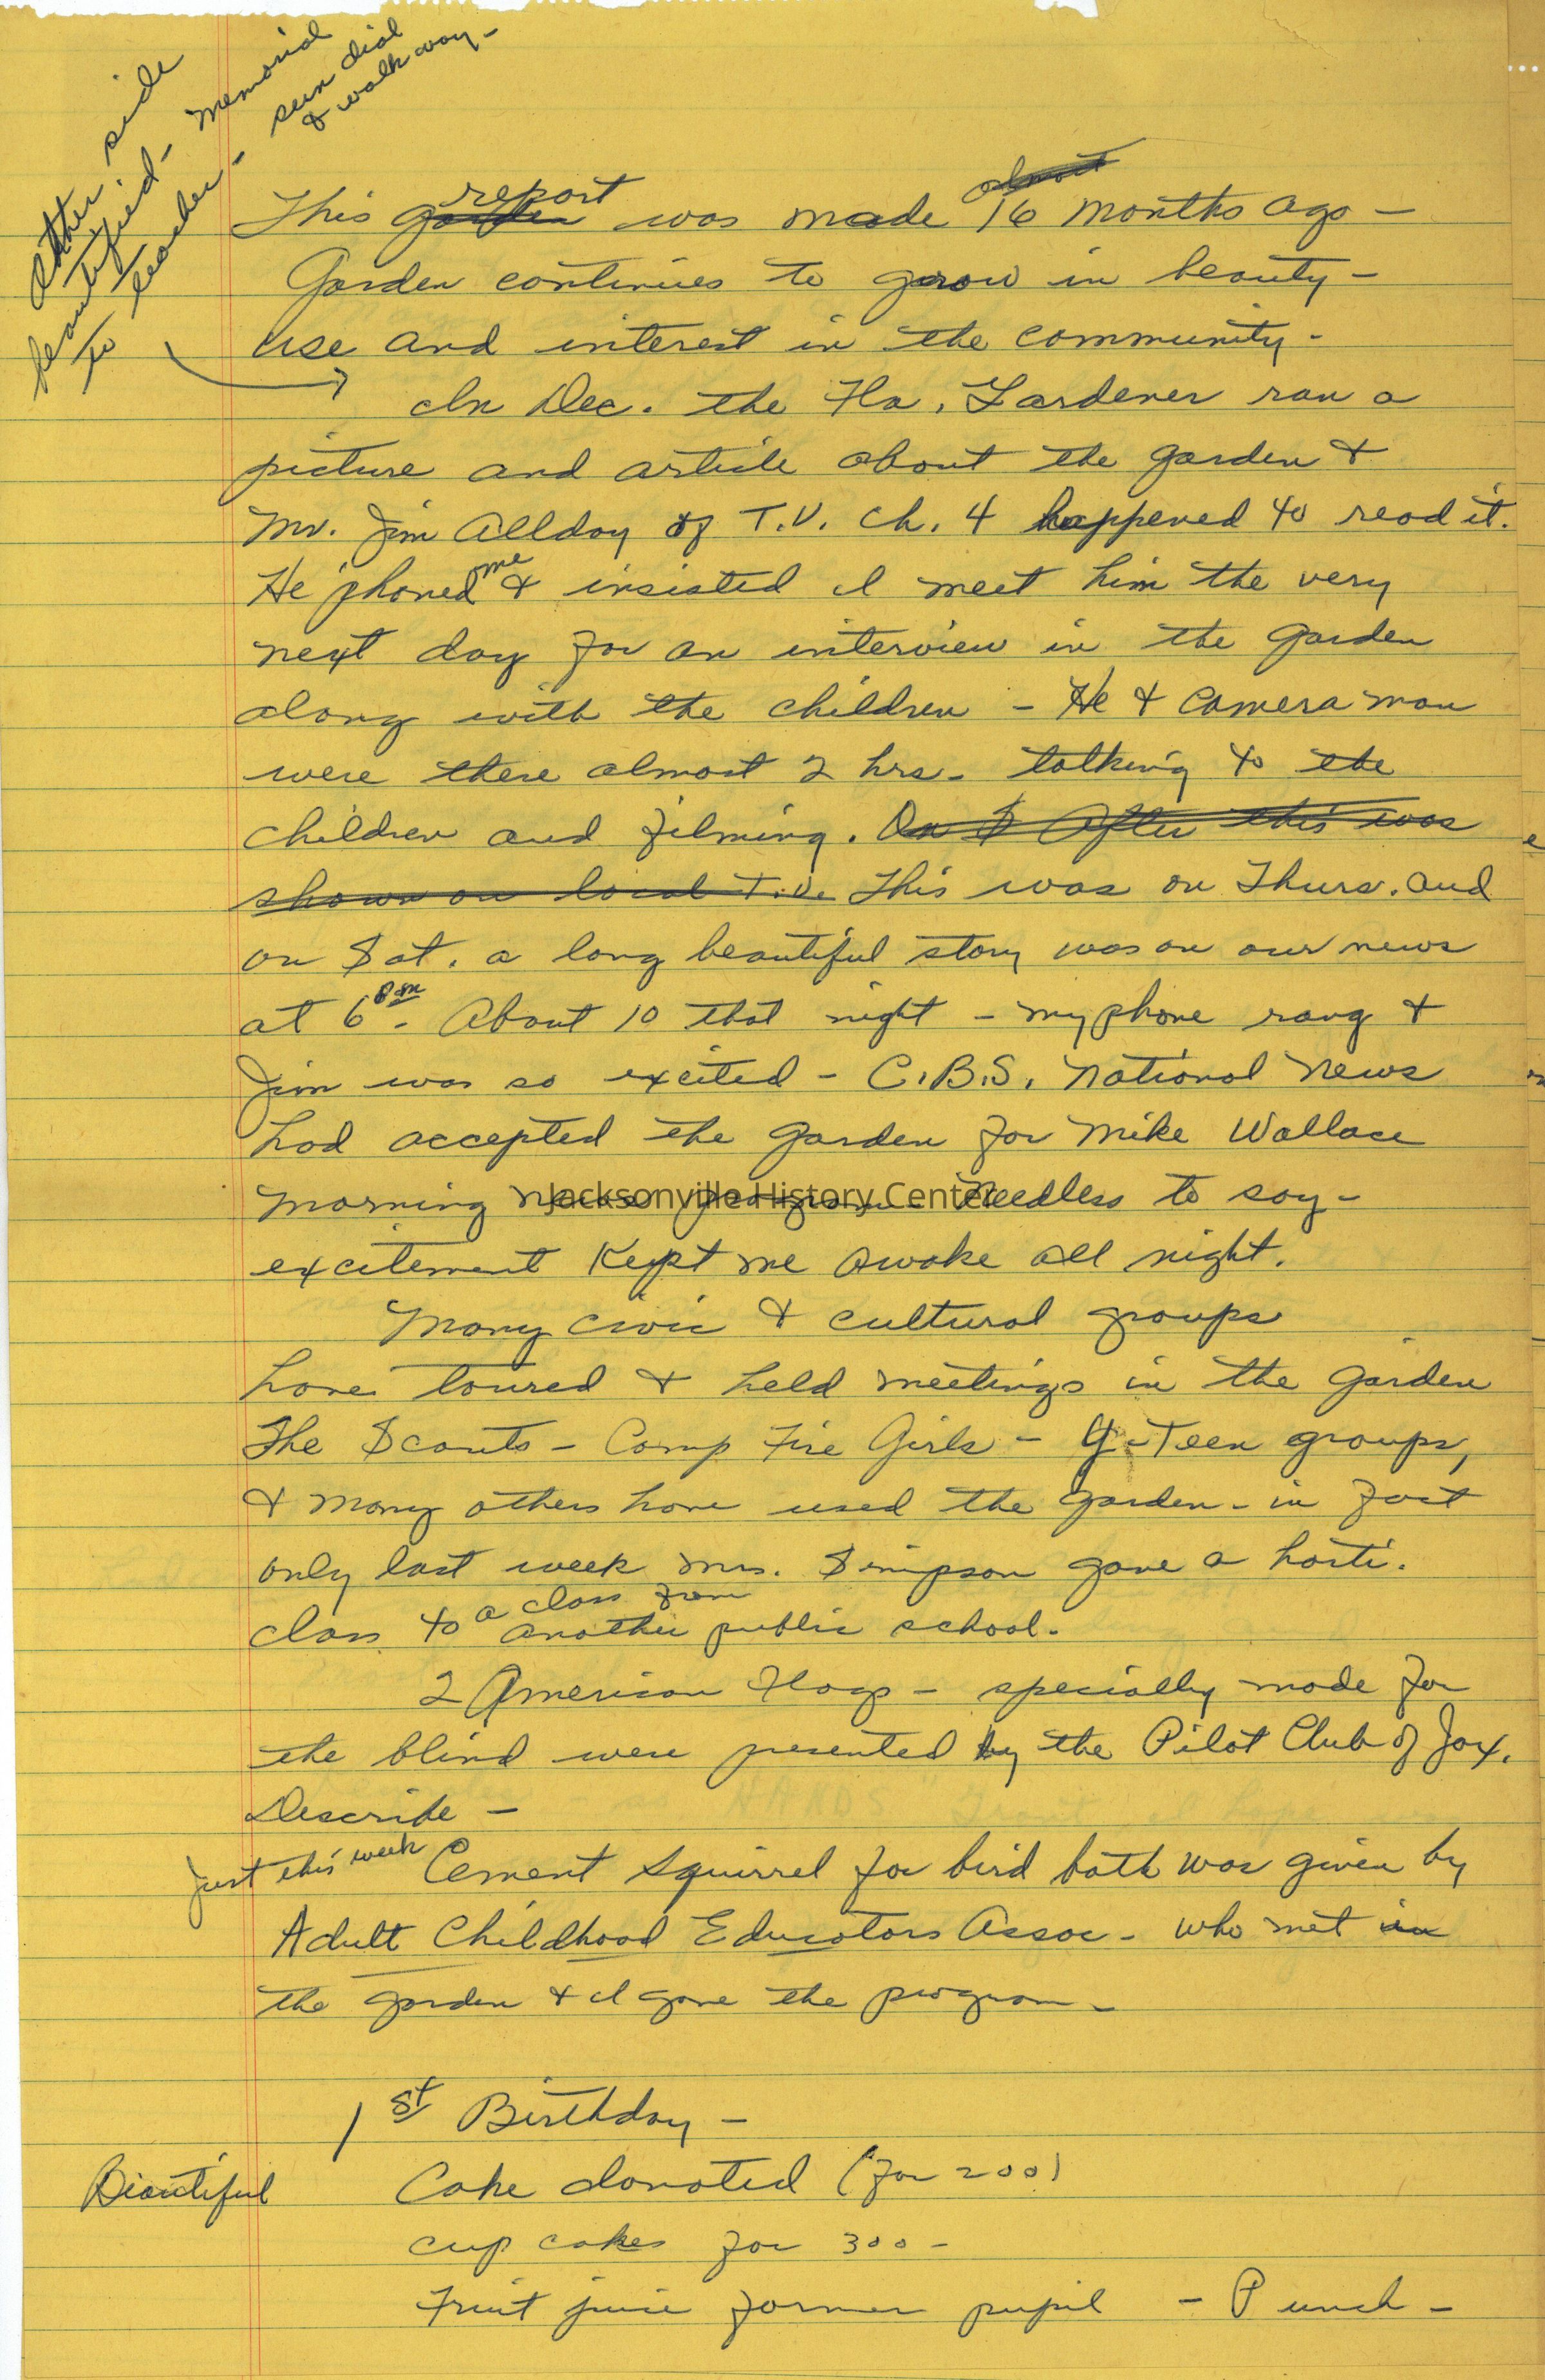 Other side
beautified - Memorial
to teacher - sun dial
& walk way -
This garden report was made almost 16 months ago -
Garden continues to grow in beauty -
use and interest in the community -
In Dec. the Fla. Gardener ran a
picture and article about the garden &
Mr. Jim Allday of T.V. Ch. 4 happened to read it.
He phoned me & insisted I meet him the very
next day for an interview in the garden
along with the children - He & camera man
were there almost 2 hrs - talking to the
children and filming. On S After this was
shown on local T.V. This was on Thurs. and
on Sat. a long beautiful story was on our news
at 6 pm - About 10 that night - my phone rang &
Jim was so excited - C.B.S. National News
had accepted the garden for Mike Wallace
Morning News program - Needless to say -
Jacksonville History Center
excitement kept me awake all night.
Many civic & cultural groups
have toured & held meetings in the garden
The Scouts - Camp Fire Girls - Y-Teen groups,
& many others have used the garden - in fact
only last week Mrs. Simpson gave a horti.
class to a class from another public school.
2 American Flags - specially made for
the blind were presented by the Pilot Club of Jax.
Describe -
Just this week Cement squirrel for bird bath was given by
Adult Childhood Educators Assoc - who met in
the garden & I gave the program -
1st Birthday -
Beautiful Cake donated (for 200)
cup cakes for 300 -
Fruit juice former pupil - Punch -